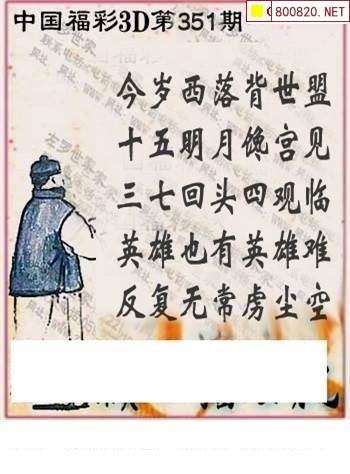 中国福彩3D第351期
800820.NET
今岁西落背世盟
十五明月馋宫见
三七回头四观临
英雄也有英雄难
反复无常虏尘空